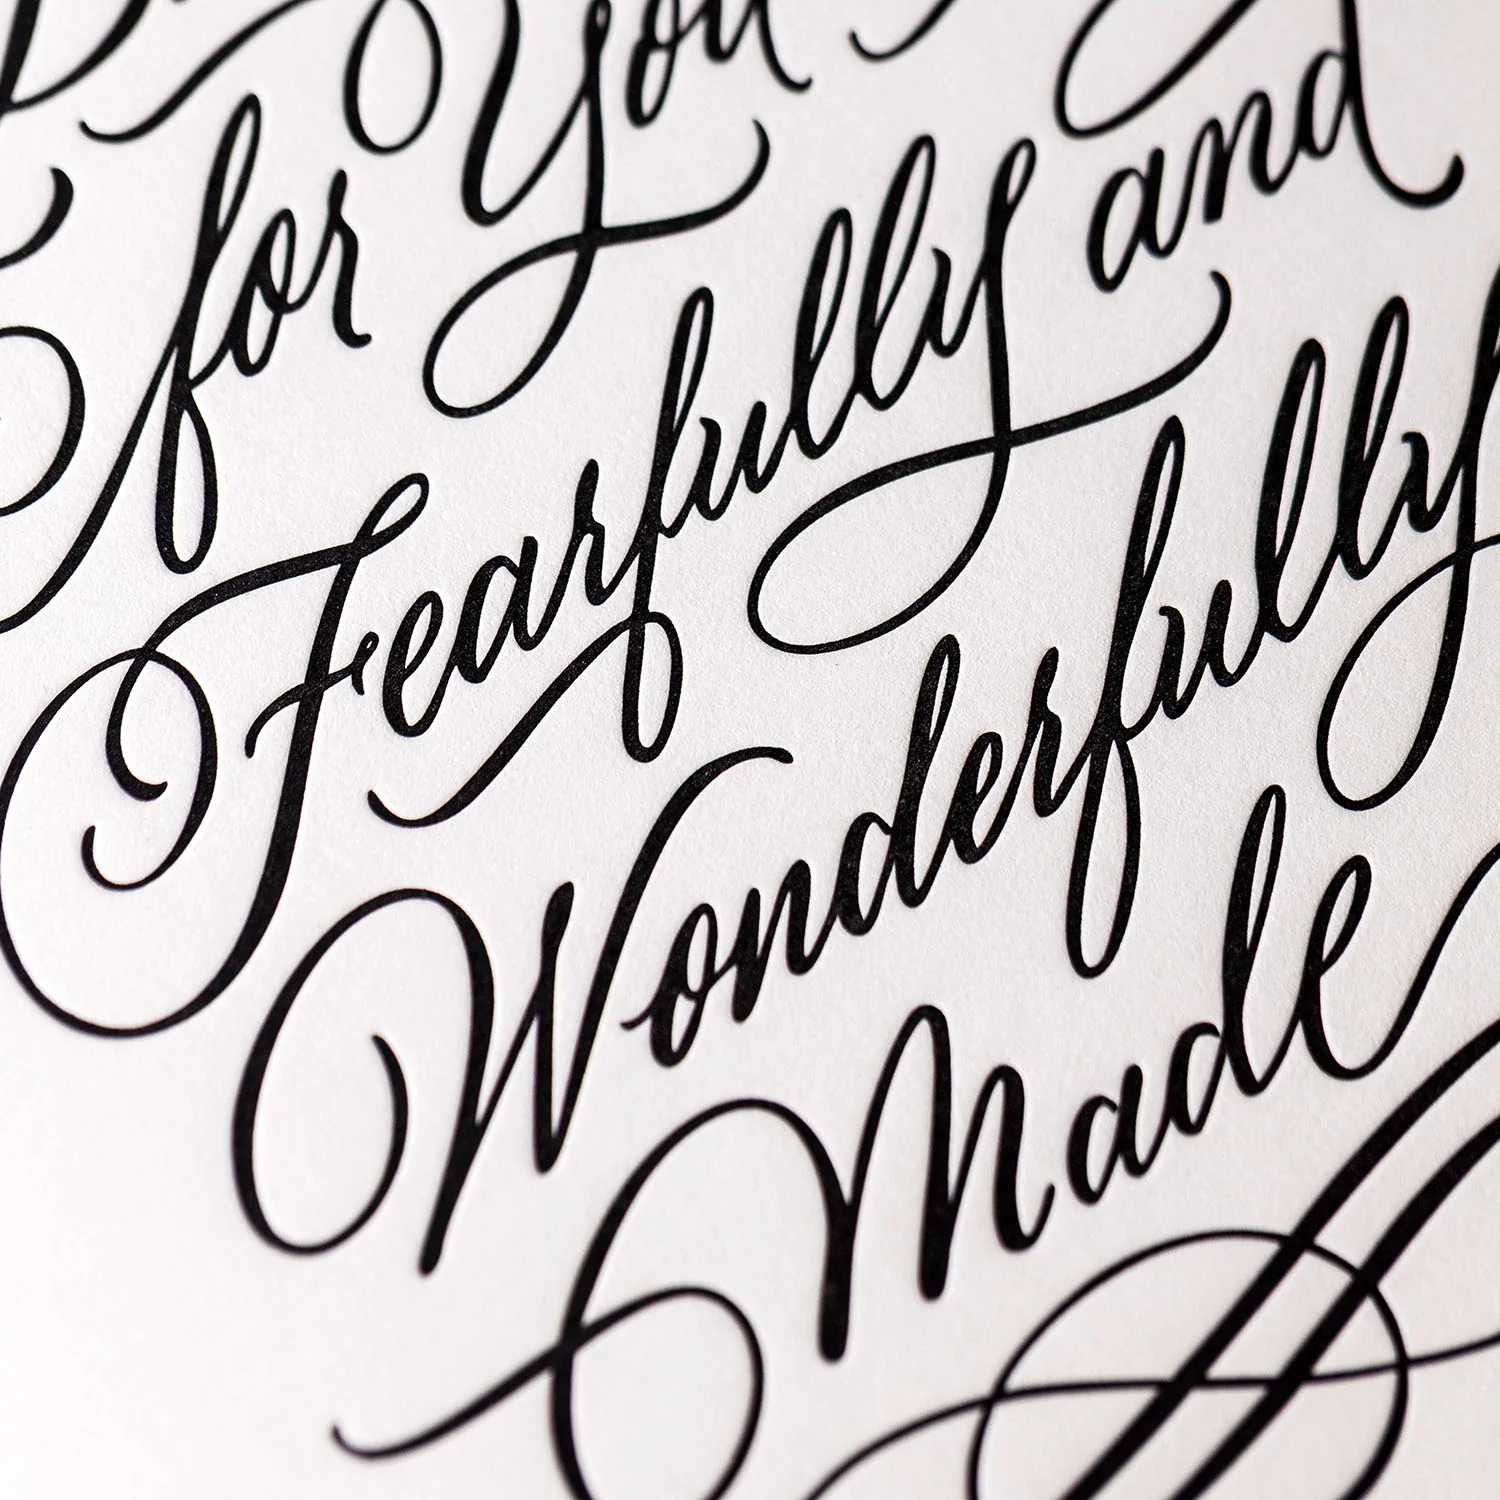 You
for
Fearfully and
Wonderfully
Made